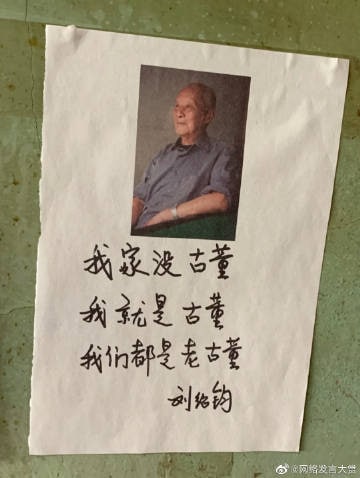 我家没古董
我就是古董
我们都是老古董
刘绍钧
@网络发言大赏